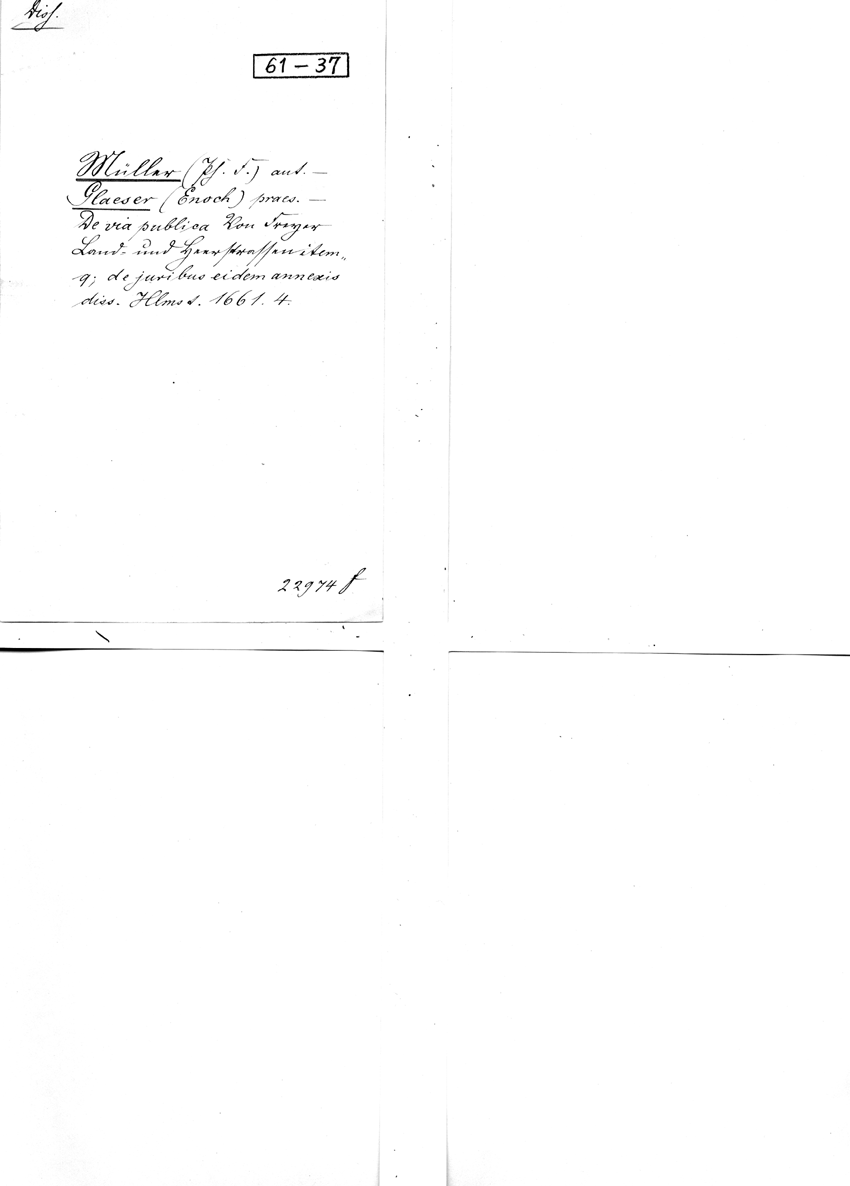 Diss.
61 – 37
Müller (Ph. F.) aut. —
Glaeser (Enoch) praes. —
De via publica Von Freyer
Land- und Heerstrassen item„
q; de juribus eidem annexis
diss. Hlmst. 1661. 4.
22974 f